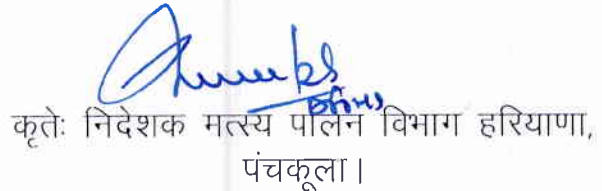 कृतेः निदेशक मत्स्य पालन विभाग हरियाणा,
पंचकूला।